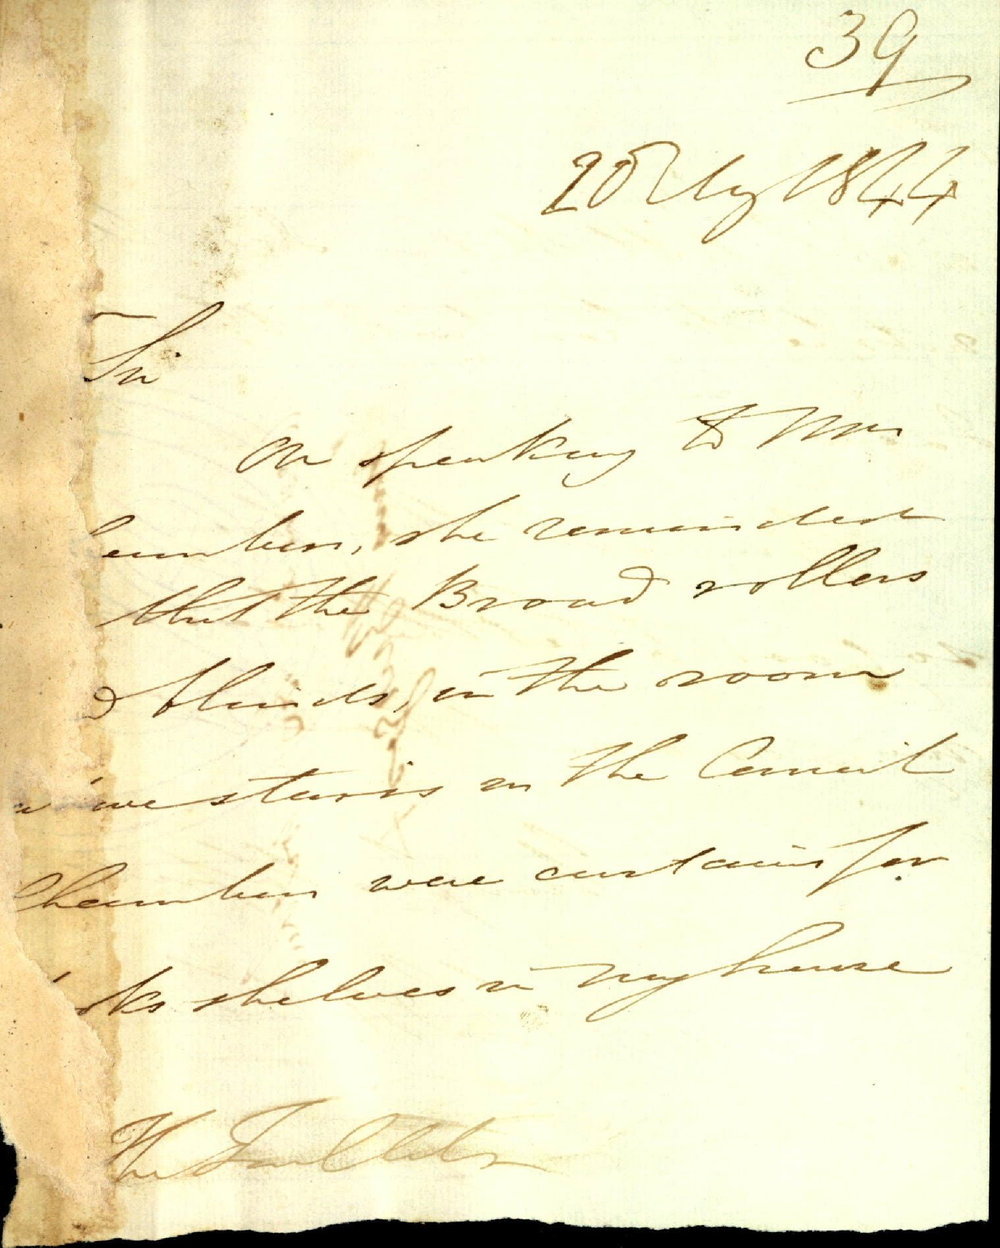 39
20 1844
Sir
On speaking to Mrs
she reminded
that the Broad rollers
blinds, in the room
in the Council
Chambers were curtains for
shelves in my house
The